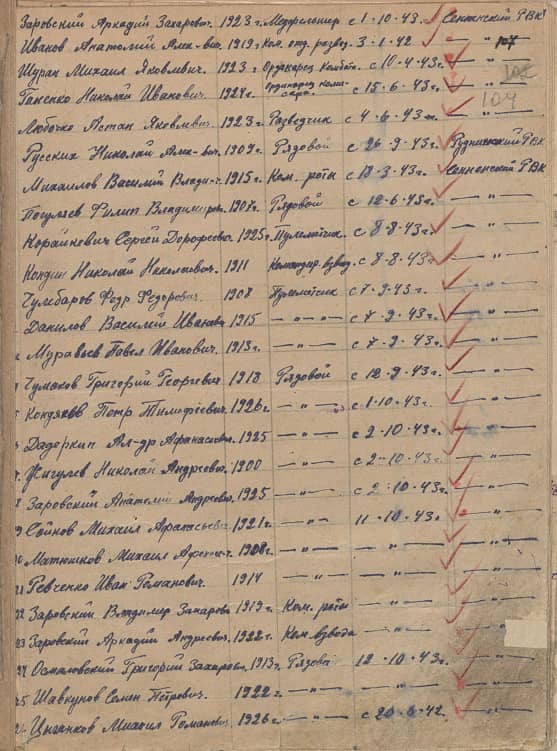 Заровский Аркадий Захарович. 1923 г. с 1·10·43. Сенненский РВК
Иванов Анатолий 1919 г. Ком. отд. развед. 3·1·42 — " —
Шурак Михаил Яковлевич. 1923 г. с 10·4·43 г. — " —
Николай Иванович. 1924 г. ординарец с 15·6·43 г. — " — 104
Яковлевич. 1923 г. Разведчик с 4·6·43 — " —
Русских Николай 1909 г. Рядовой с 26·9·43 г. РВК
Михайлов Василий 1915 г. Ком. роты с 18·3·43 г. Сенненский РВК
Филип 1907 г. Рядовой с 12·6·43 г. — " —
Корайкевич Сергей Дорофеевич. 1925 г. Пулеметчик. с 8·8·43 г. — " —
Кондин Николай Николаевич. 1911 Командир. взвод. с 8·8·43 г. — " —
Чумбаров Федр Федорович. 1908 Пулеметчик с 7·9·43 г. — " —
Данилов Василий Иванович 1915 — " — с 7·9·43 г. — " —
Муравьев Павел Иванович. 1913 г. — " — с 7·9·43 г. — " —
Чумаков Григорий Георгиевич 1918 Рядовой с 12·9·43 г. — " —
Кондяков Петр Тимофіевич. 1926 г. — " — с 1·10·43 г. — " —
Дадеркин Ал-др Афанасьевич. 1925 — " — с 2·10·43 г. — " —
Жигулев Николай Андреевич. 1900 — " — с 2·10·43 г. — " —
Заровский Анатолий Андреевич. 1925 — " — с 2·10·43 г. — " —
Михаил 1921 г. — " — 11·10·43 г. — " —
Матюшков Михаил 1908 г. — " — — " — — " —
21 Ревченко Иван Романович. 1914 — " — — " — — " —
22 Заровский Владимер Захарович 1919 г. Ком. роты — " — — " —
23 Заровский Аркадий Андреевич. 1922 г. Ком. взвода — " — — " —
24 Григорий Захарович. 1913 г. Рядовой 12·10·43 г. — " —
25 Шавкунов Семен Петрович. 1922 г. — " — — " — — " —
26 Цыганков Михаил Романович 1926 г. — " — с 20·6·42. — " —